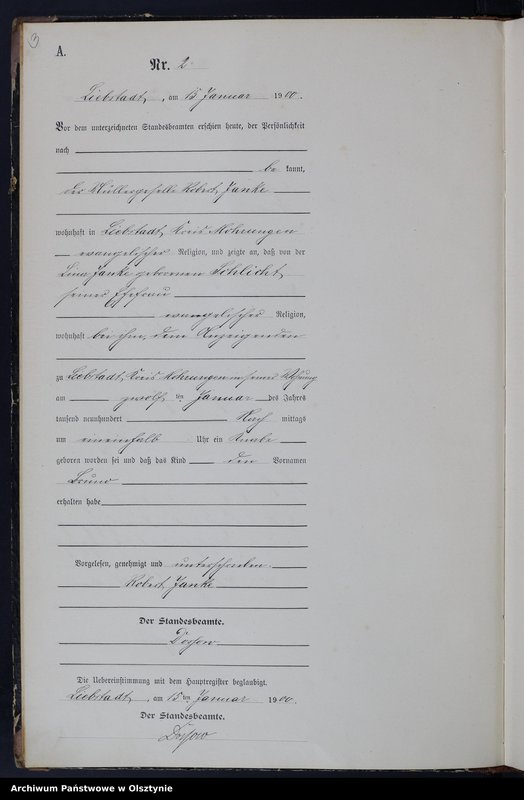 3
A.
Nr. 2
Liebstadt, am 15 Januar 1900.
Vor dem unterzeichneten Standesbeamten erschien heute, der Persönlichkeit
nach
be kannt,
der Müllergeselle Robert Janke
wohnhaft in Liebstadt, Kreis Mohrungen
evangelischer Religion, und zeigte an, daß von der
Lina Janke geborenen Schlicht,
seiner Ehefrau
evangelischer Religion,
wohnhaft bei ihm, dem Anzeigenden
zu Liebstadt, Kreis Mohrungen in seiner Wohnung
am zwölf ten Januar des Jahres
tausend neunhundert Nach mittags
um eineinhalb Uhr ein Knabe
geboren worden sei und daß das Kind den Vornamen
Bruno
erhalten habe
Vorgelesen, genehmigt und unterschrieben.
Robert Janke
Der Standesbeamte.
Dossow
Die Uebereinstimmung mit dem Hauptregister beglaubigt.
Liebstadt, am 15ten Januar 1900.
Der Standesbeamte.
Dossow
Archiwum Państwowe w Olsztynie